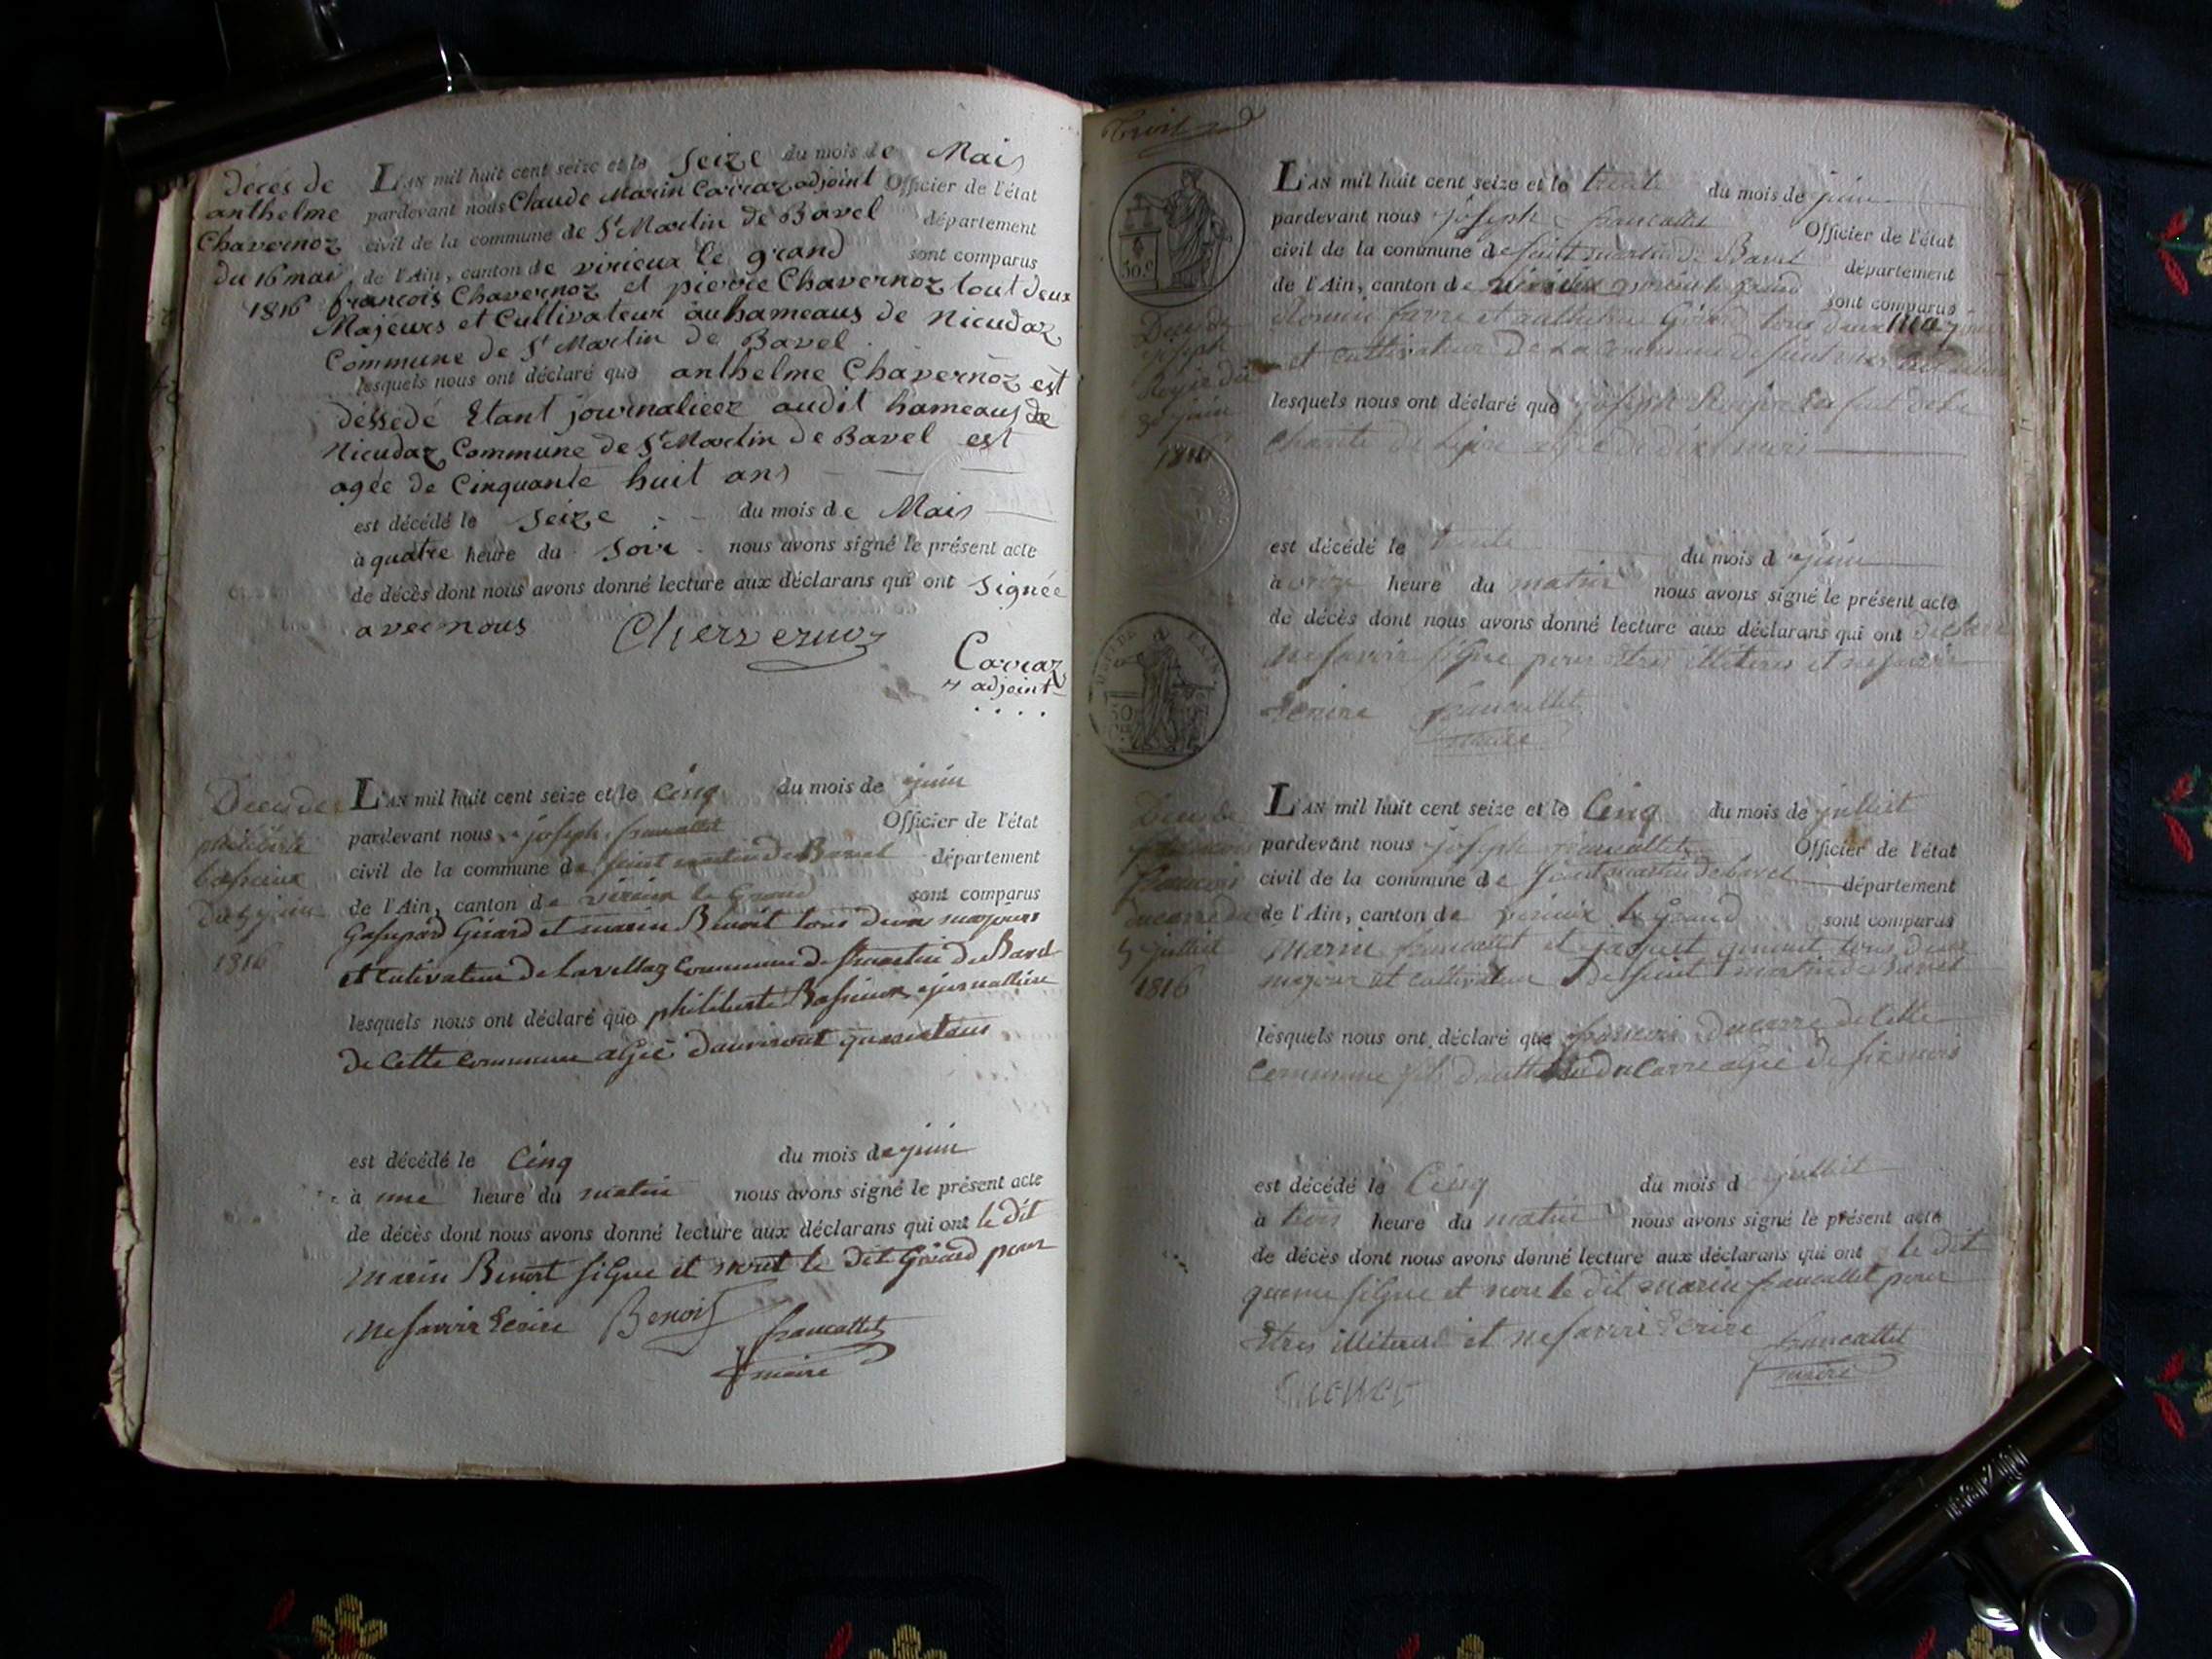 Décés de
anthelme
Chavernoz
du 16 mai
1816
L'AN mil huit cent seize et le Seize du mois de Mais
pardevant nous Claude Marin Carraz adjoint Officier de l'état
civil de la commune de St Martin de Bavel département
de l'Ain, canton de virieux le grand sont comparus
francois Chavernoz et pierre Chavernoz tout deux
Majeurs et Cultivateur au hameaus de Nicudaz
Commune de St Martin de Bavel
lesquels nous ont déclaré que anthelme Chavernoz est
dessedé Etant journalieer audit hameaus de
Nicudaz Commune de St Martin de Bavel est
agée de Cinquante huit ans
est décédé le Seize du mois de Mais
à quatre heure du soir nous avons signé le présent acte
de décès dont nous avons donné lecture aux déclarans qui ont signée
avec nous
Carraz
adjoint
Deces de
philiberte
du 5 juin
1816
L'AN mil huit cent seize et le cinq du mois de juin
pardevant nous joseph francallet Officier de l'état
civil de la commune de saint martin de Bavel département
de l'Ain, canton de virieux le Grand sont comparus
Gaspard Girard et marin Benoit tous deux majeurs
et cultivateur de Lavellaz commune de St martin de Bavel
lesquels nous ont déclaré que philiberte journalliere
de Cette commune agée quarante ans
est décédé le Cinq du mois de juin
à une heure du matin nous avons signé le présent acte
de décès dont nous avons donné lecture aux déclarans qui ont le dit
marin Benoit signe et nont le dit Girard pour
ne savoir Ecrire Benoit
francallet
maire
30 c
Deces de
joseph
Rojat du
30 juin
1816
L'AN mil huit cent seize et le trente du mois de juin
pardevant nous joseph francallet Officier de l'état
civil de la commune de saint martin de Bavel département
de l'Ain, canton de virieux le grand sont comparus
et anthelme Girard tous deux majeurs
et cultivateur de La Commune de saint martin
lesquels nous ont déclaré que joseph
charité de agée de mois
est décédé le trente du mois d juin
à onze heure du matin nous avons signé le présent acte
de décès dont nous avons donné lecture aux déclarans qui ont declaré
ne savoir signe pour etres illiteres et ne savoir
Ecrire francallet
maire
Deces de
francois
ducarre du
5 julliet
1816
L'AN mil huit cent seize et le Cinq du mois de julliet
pardevant nous joseph francallet Officier de l'état
civil de la commune de saint martin de bavel département
de l'Ain, canton de virieux le Grand sont comparus
marin francallet et jaquet tous deux
majeur et cultivateur de saint martin de Bavel
lesquels nous ont déclaré que francois Ducarre de Cette
Commune fils ducarre agée de six mois
est décédé le Cinq du mois d julliet
à trois heure du matin nous avons signé le présent acte
de décès dont nous avons donné lecture aux déclarans qui ont le dit
signe et non le dit marin francallet pour
Etres illiteres et ne savoir Ecrire francallet
maire